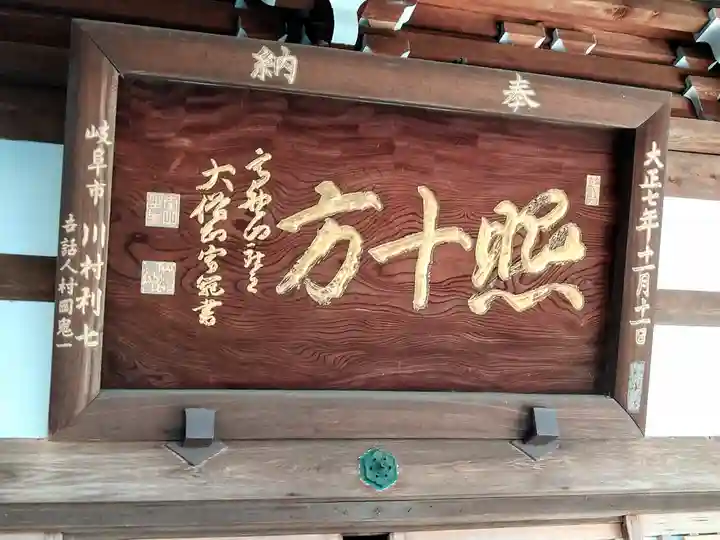 奉納
大正七年十一月十一日
照十方
大僧正寛範書
岐阜市 川村利七
世話人村岡鬼一